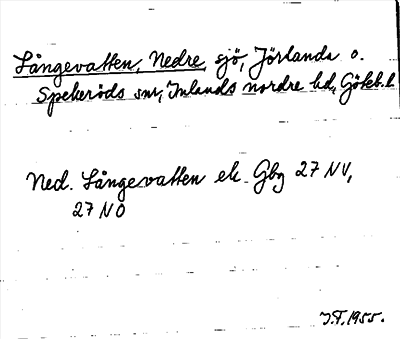 Långevatten, Nedre, sjö, Jörlanda o.
Spekeröds snr, Inlands nordre hd, Göteb. l
Ned. Långevatten ek. Gbg 27 NV,
27 NO
J.F. 1955.